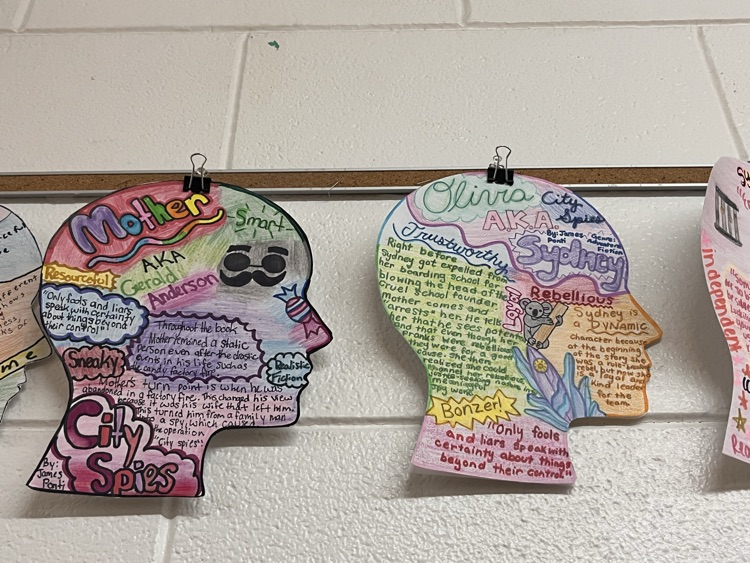 Mother
AKA
Gerald
Anderson
-Smart-
Resourceful!
"Only fools and liars
speak with certainty
about things beyond
their control"
Sneaky
Throughout the book
Mother remained a static
person even after the drastic
events in his life such as
candy factory fire.
Realistic
Fiction
Mothers turn point is when he was
abandoned in a factory fire. This changed his view
because it was his wife that left him.
this turned him from a family man
to a spy which caused
the operation
"City spies".
City
Spies
By:
James
Ponti
Olivia
A.K.A.
Sydney
City
Spies
By: James
Ponti
Genre:
Adventure
Fiction
Trustworthy
Right before
Sydney got expelled for
her boarding school for
blowing the head of the
cruel school founder
mother comes and
arrests her. He tells
her that he sees past
and that even though her
pranks were rebellious
they were for a good
cause. She then
realized she could
channel her rebellious
Loyal
Rebellious
Sydney is
a DYNAMIC
character because
at the beginning
of the story she
was a rule-
rebel but now a
loyal and
kind leader
for the
team.
Bonzer!
"Only fools
and liars speak with
certainty about things
beyond their control"
independent
me